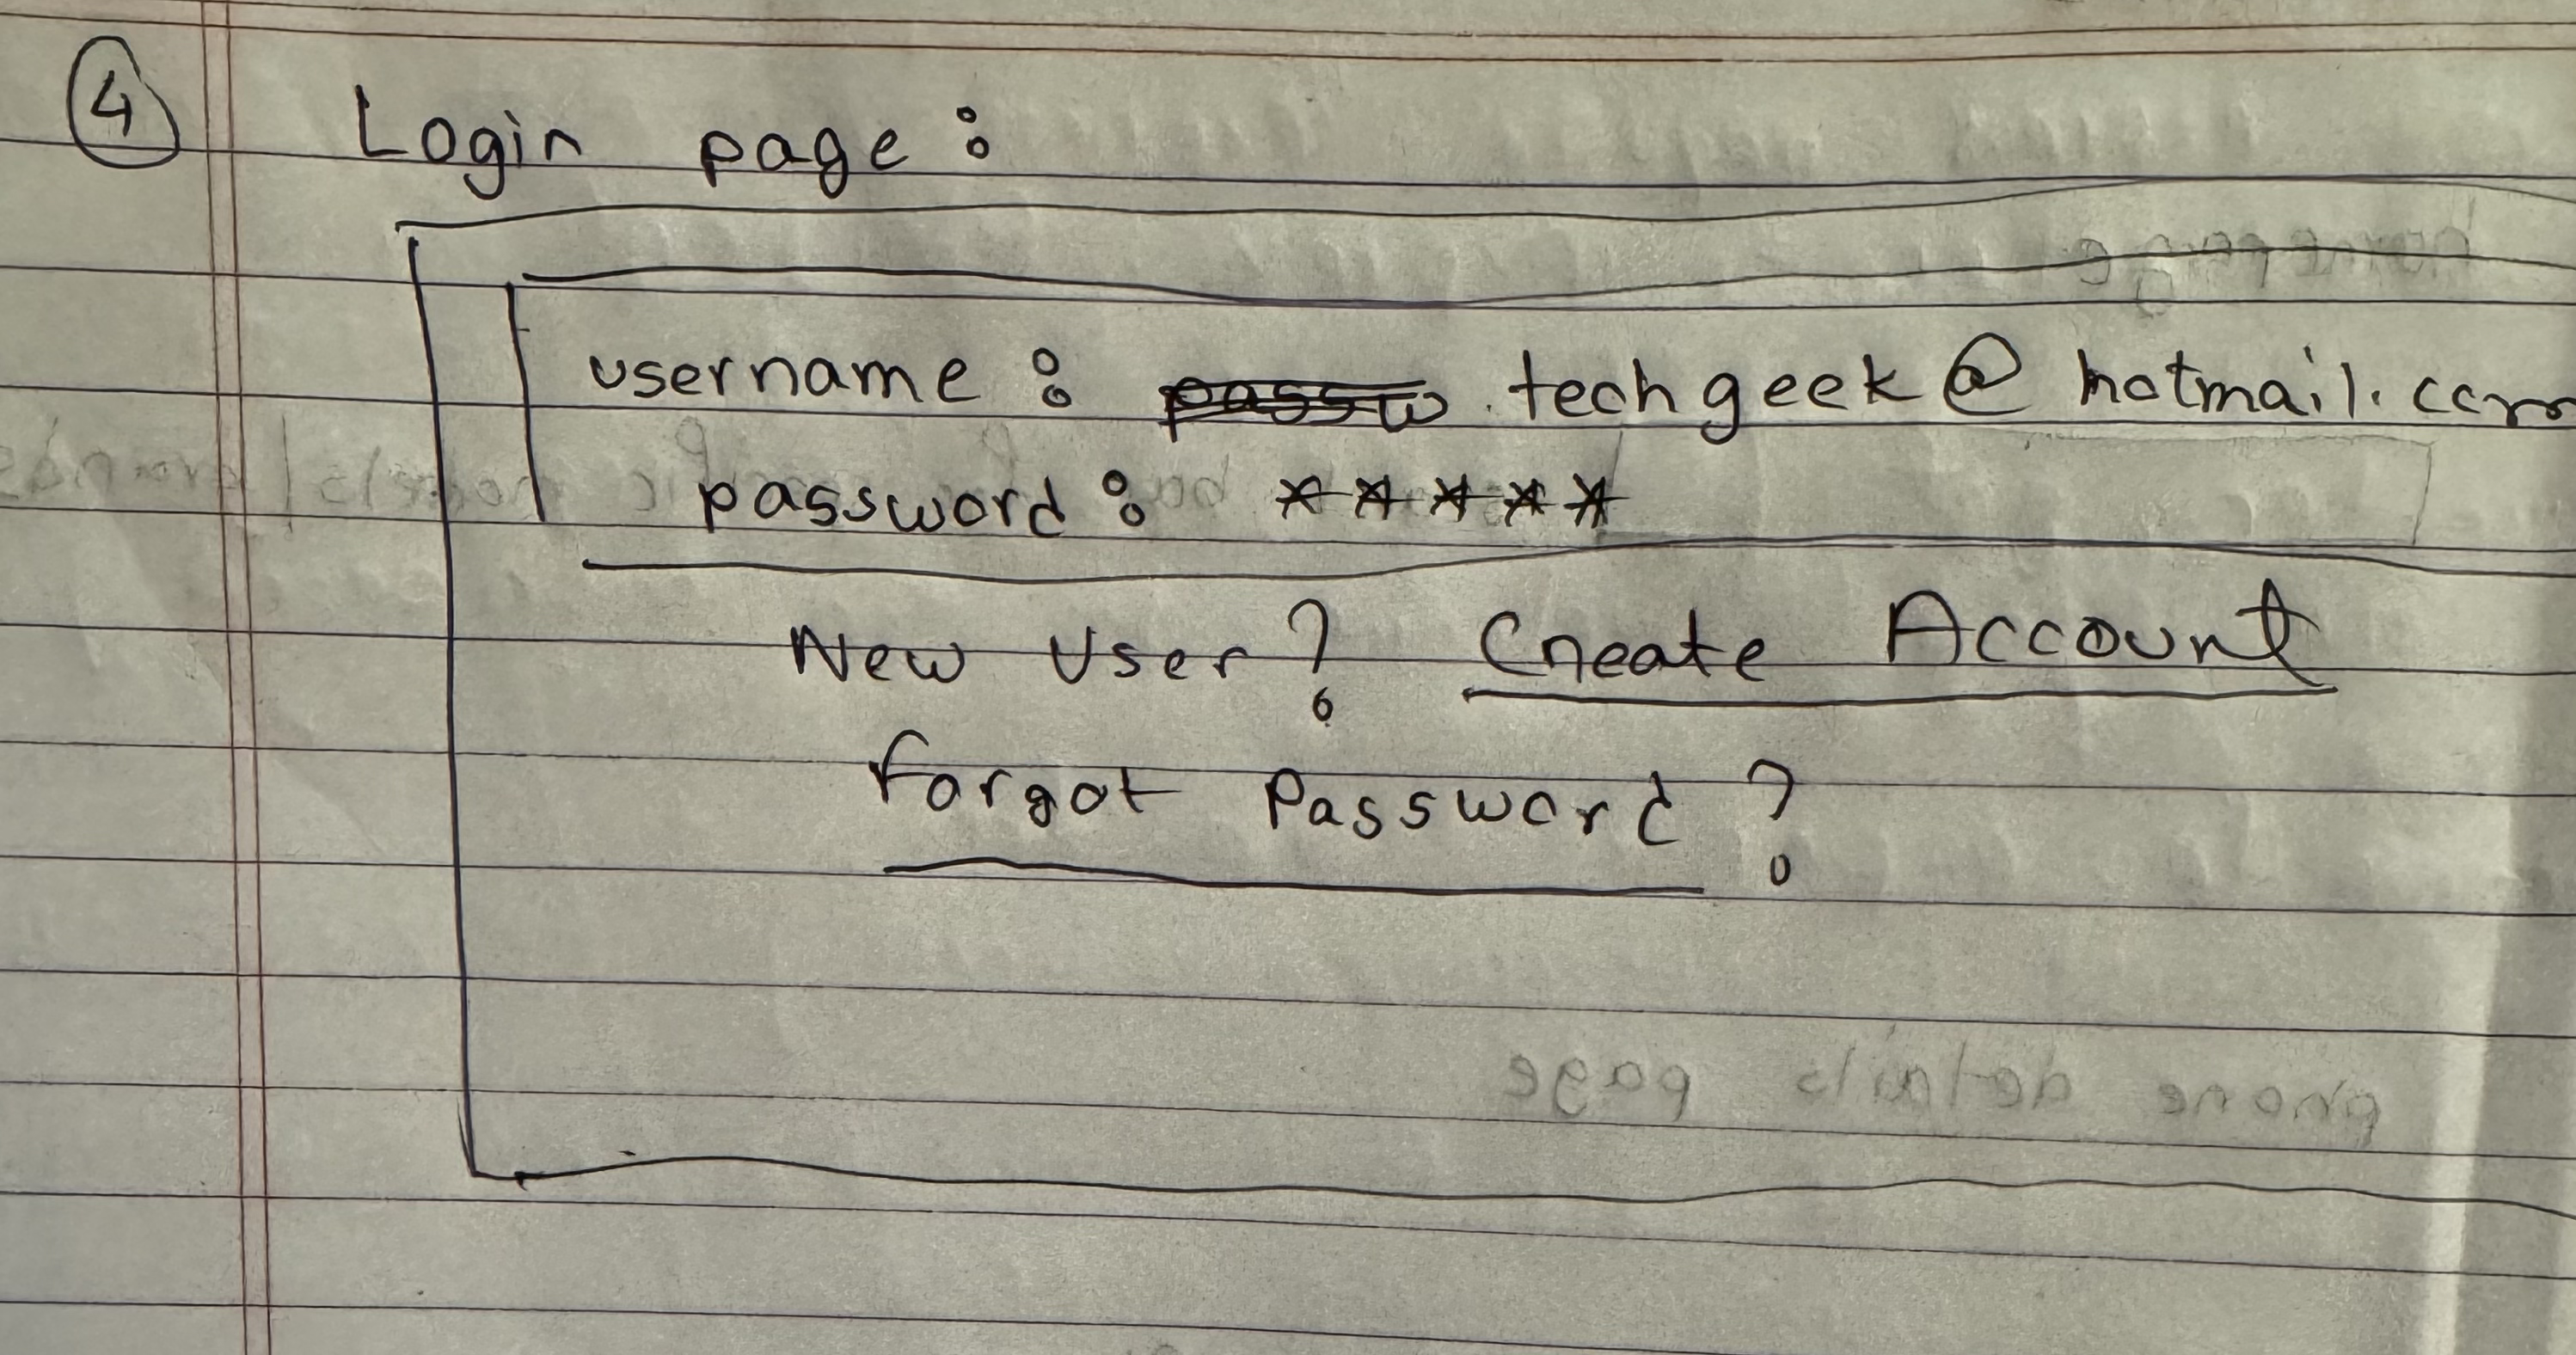 4 Login page :
username : techgeek@hotmail.com
password : *****
New User ? Create Account
Forgot Password ?